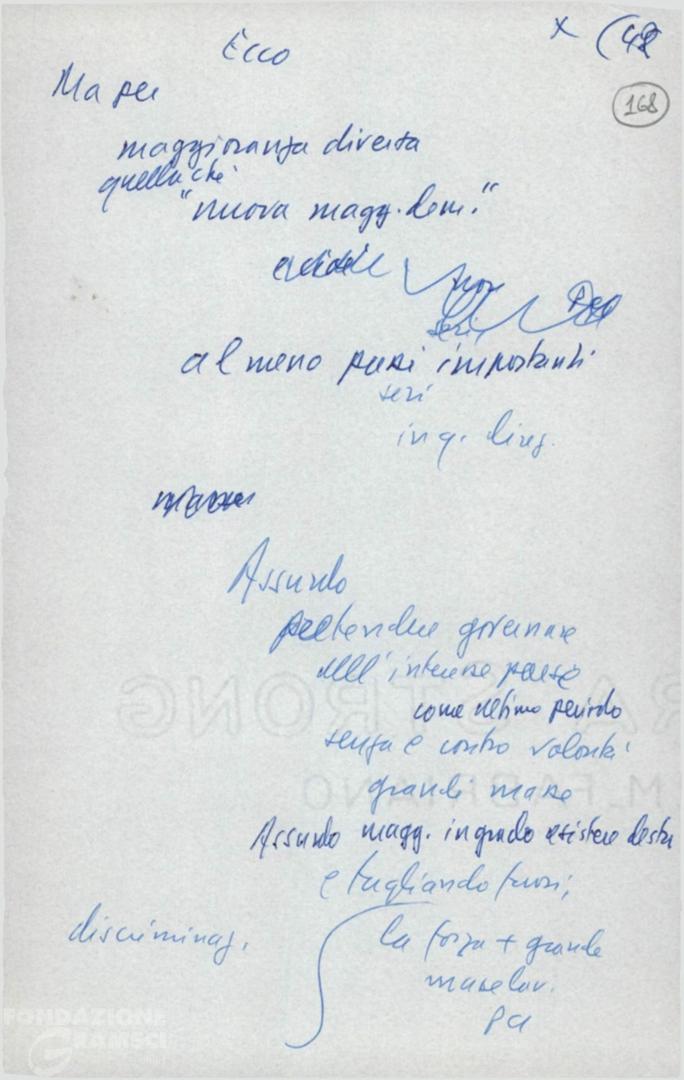 Ecco
x (48
168
Ma per
maggioranza diversa
quella che
"nuova magg. dem."
almeno paesi importanti
seri
in q. direz.
Assurdo
pretendere governare
nell'interesse paese
come ultimo periodo
senza e contro volontà
grandi masse
Assurdo magg. in grado resistere destra
e tagliando fuori,
discriminaz.
la forza + grande
masse lav.
PCI
FABRIANO
FONDAZIONE
GRAMSCI